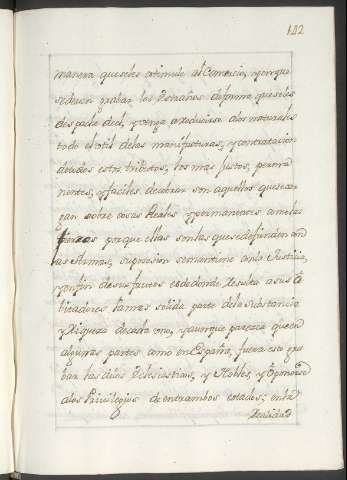 142
manera que seles estimule al Comercio, y porque
se devan grabar los Estraños de forma que seles
despache del, y venga a reducirse alos naturales
todo el util delas manifacturas, y contratacion
de todos estos tributos, los mas justos, perma
nentes, y faciles de cobrar son aquellos que se car
gan sobre cosas Reales y permanentes como las
porque ellas son las que se defienden con
las Armas, su posesion se mantiene con la Justicia,
y en fin de sus frutos es de donde resulta a sus
la mas solida parte dela substancia
y Riqueza de cada uno, y aunque parezca que en
algunas partes como en España, fuera esto gra
bar las dhos Eclesiasticos, y Nobles, y oponerse
alos Privilegios de entrambos estados; en la
Realidad